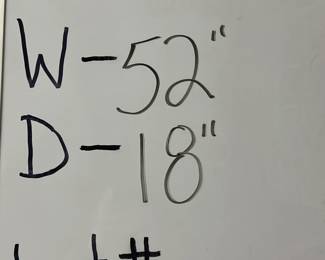 W-52"
D-18"